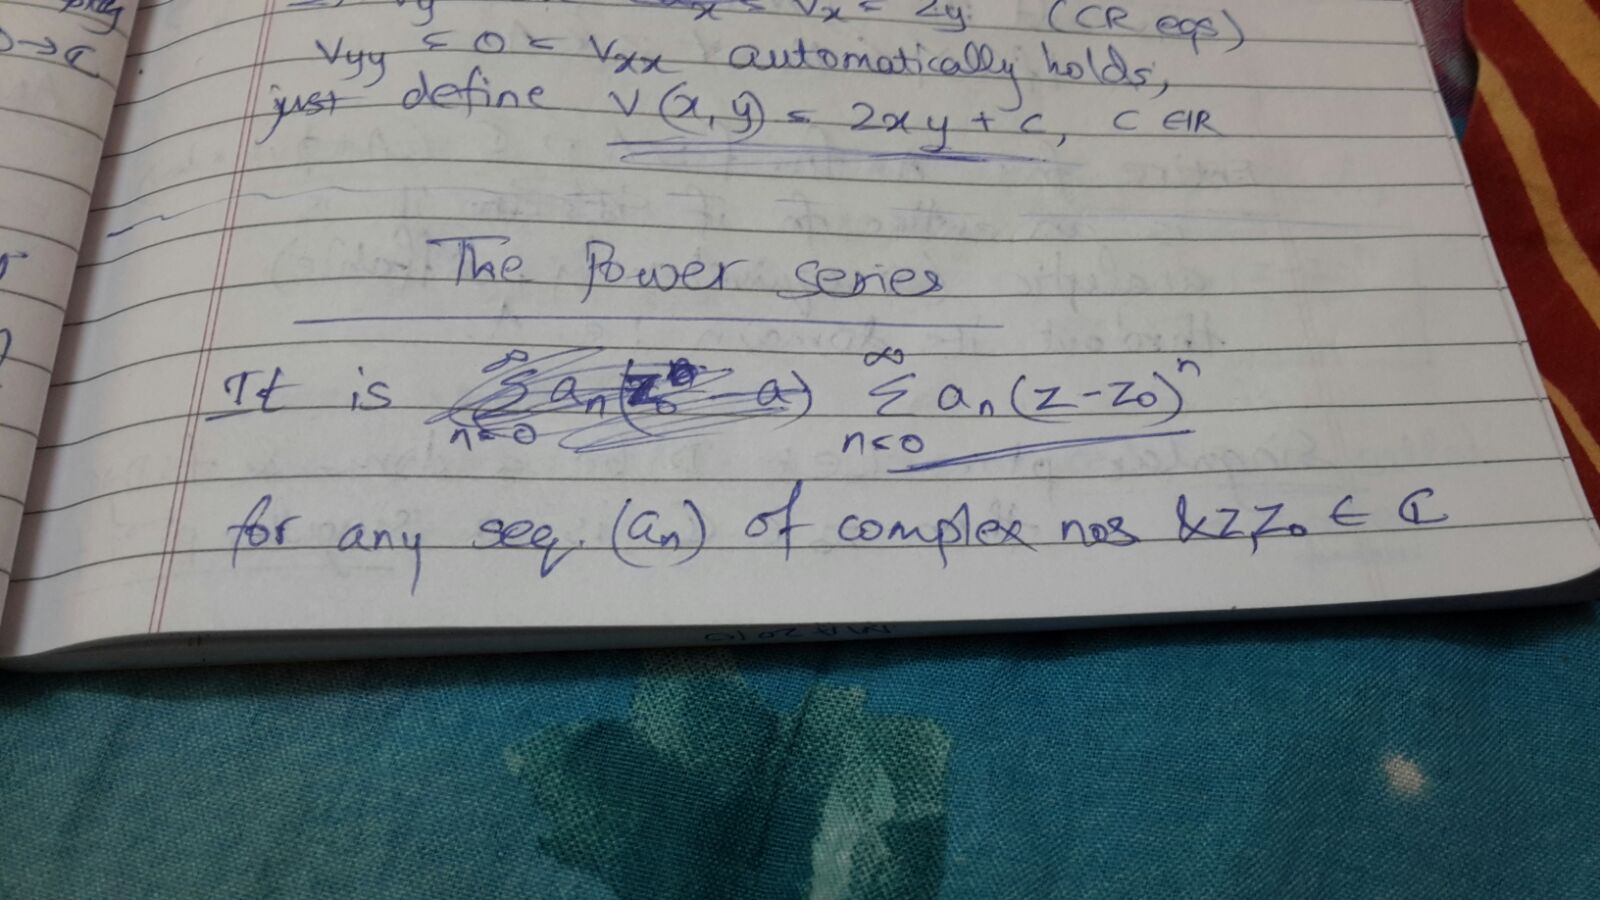 Vy = Ux = Vx = 2y (CR eqs)
→ C
Vyy = 0 = Vxx automatically holds,
just define V(x, y) = 2xy + c, c ∈ IR
The Power series
It is ∞Σn=0 an(z-z0)^n
for any seq. (an) of complex nos & z, z0 ∈ C